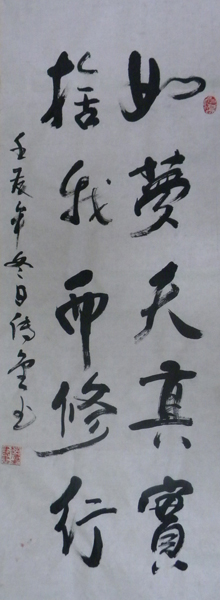 如夢天真實
捨我而修行
壬辰年冬日傳会书